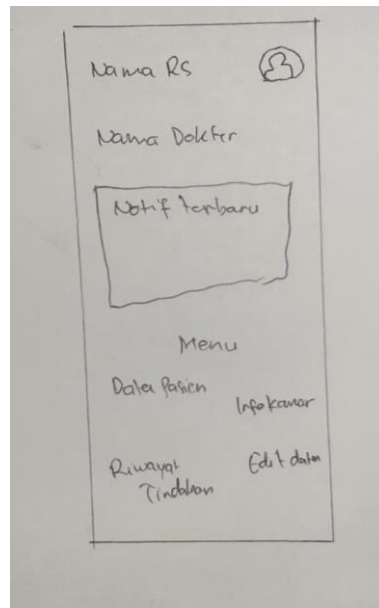 Nama RS
Nama Dokter
Notif terbaru
Menu
Data Pasien
Info kamar
Riwayat
Tindakan
Edit data